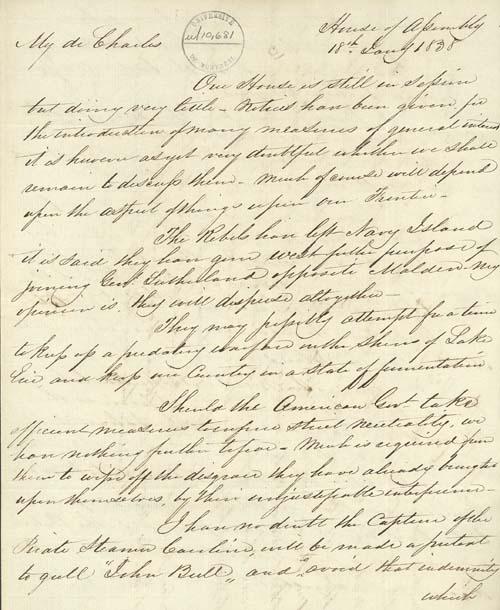 House of Assembly
18th Jany 1838
My dr Charles
UNIVERSITY
10,681
Our House is still in Session
but doing very little - Notices have been given for
the introduction of many measures of general interest
it is however as yet very doubtful whether we shall
remain to discuss them - Much of course will depend
upon the aspect of things upon our Frontier -
The Rebels have left Navy Island
it is said they have gone West for the purpose of
joining Genl Sutherland opposite Malden - my
opinion is they will disperse altogether -
They may possibly attempt for a time
to keep up a predatory warfare on the shores of Lake
Erie and keep our Country in a state of fermentation
Should the American Govt take
efficient measures to enforce strict Neutrality, we
have nothing further to fear - Much is required from
them to wipe off the disgrace they have already brought
upon themselves, by their unjustifiable interference -
I have no doubt the Capture of the
Pirate Steamer Caroline, will be made a pretext
to gull "John Bull" and avoid that indemnity
which